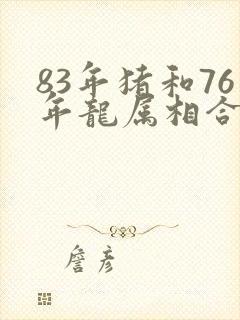 83年猪和76
年龍属相合
詹彦